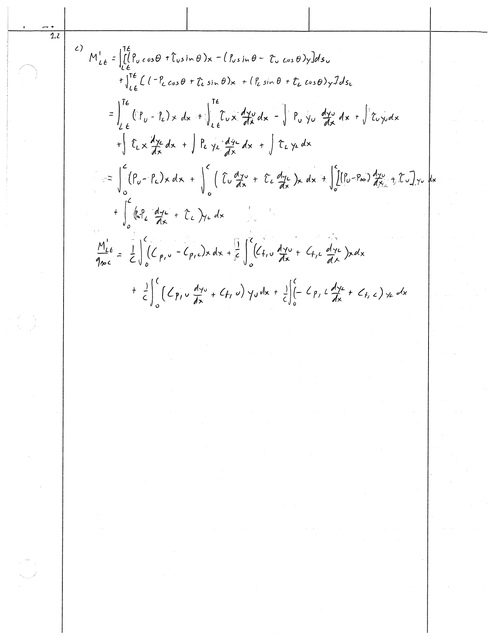 2.2
c) M'_LE = ∫_LE^TE [(P_U cosθ + τ_U sinθ)x - (P_U sinθ - τ_U cosθ)y]ds_U
+ ∫_LE^TE [(-P_L cosθ + τ_L sinθ)x + (P_L sinθ + τ_L cosθ)y]ds_L
= ∫_LE^TE (P_U - P_L) x dx + ∫_LE^TE τ_U x dy_U/dx dx - ∫ P_U y_U dy_U/dx dx + ∫ τ_U y_U dx
+ ∫ τ_L x dy_L/dx dx + ∫ P_L y_L dy_L/dx dx + ∫ τ_L y_L dx
= ∫_0^c (P_U - P_L) x dx + ∫_0^c (τ_U dy_U/dx + τ_L dy_L/dx) x dx + ∫_0^c [(P_U - P_∞) dy_U/dx + τ_U] y_U dx
+ ∫_0^c (P_L dy_L/dx + τ_L) y_L dx
M'_LE / q_∞ c² = 1/c ∫_0^c (C_P,U - C_P,L) x dx + 1/c ∫_0^c (C_f,U dy_U/dx + C_f,L dy_L/dx) x dx
+ 1/c ∫_0^c (C_P,U dy_U/dx + C_f,U) y_U dx + 1/c ∫_0^c (- C_P,L dy_L/dx + C_f,L) y_L dx